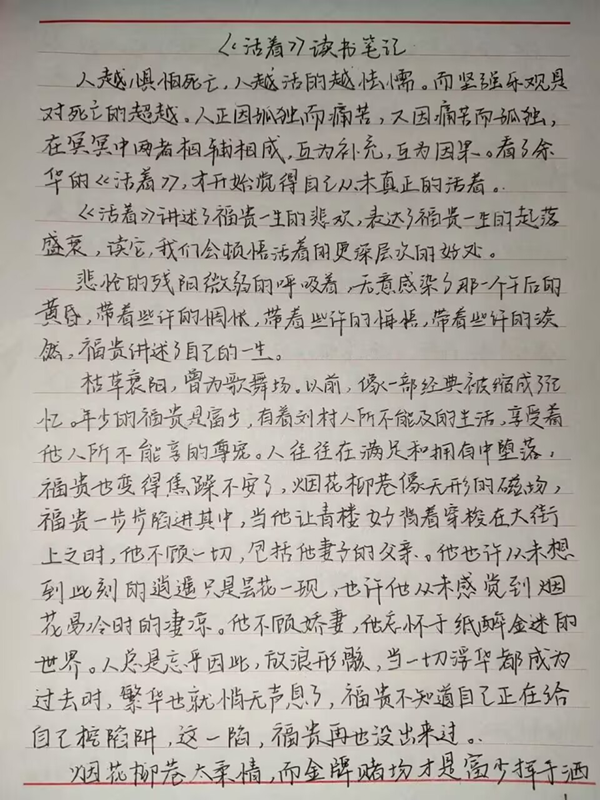 《活着》读书笔记
人越惧怕死亡，人越活的越怯懦。而坚强乐观是
对死亡的超越。人正因孤独而痛苦，又因痛苦而孤独，
在冥冥中两者相辅相成，互为补充，互为因果。看了余
华的《活着》，才开始觉得自己从未真正的活着。
《活着》讲述了福贵一生的悲欢，表达了福贵一生的起落
盛衰，读它，我们会顿悟活着的更深层次的好处。
悲怆的残阳微弱的呼吸着，无意感染了那一个午后的
黄昏，带着些许的惆怅，带着些许的悔悟，带着些许的淡
然，福贵讲述了自己的一生。
枯草衰阳，曾为歌舞场。以前，像一部经典被缩成了记
忆。年少的福贵是富少，有着刘村人所不能及的生活，享受着
他人所不能享的尊宠。人往往在满足和拥有中堕落，
福贵也变得焦躁不安了，烟花柳巷像无形的磁场，
福贵一步步陷进其中，当他让青楼女背着穿梭在大街
上之时，他不顾一切，包括他妻子的父亲。他也许从未想
到此刻的逍遥只是昙花一现，也许他从未感觉到烟
花易冷时的凄凉。他不顾娇妻，他忘怀于纸醉金迷的
世界。人总是忘乎因此，放浪形骸，当一切浮华都成为
过去时，繁华也就悄无声息了，福贵不知道自己正在给
自己挖陷阱，这一陷，福贵再也没出来过。
烟花柳巷太柔情，而金牌赌场才是富少挥手洒